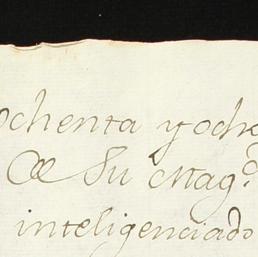 ochenta y oche
De Su Mag.d
inteligenciado